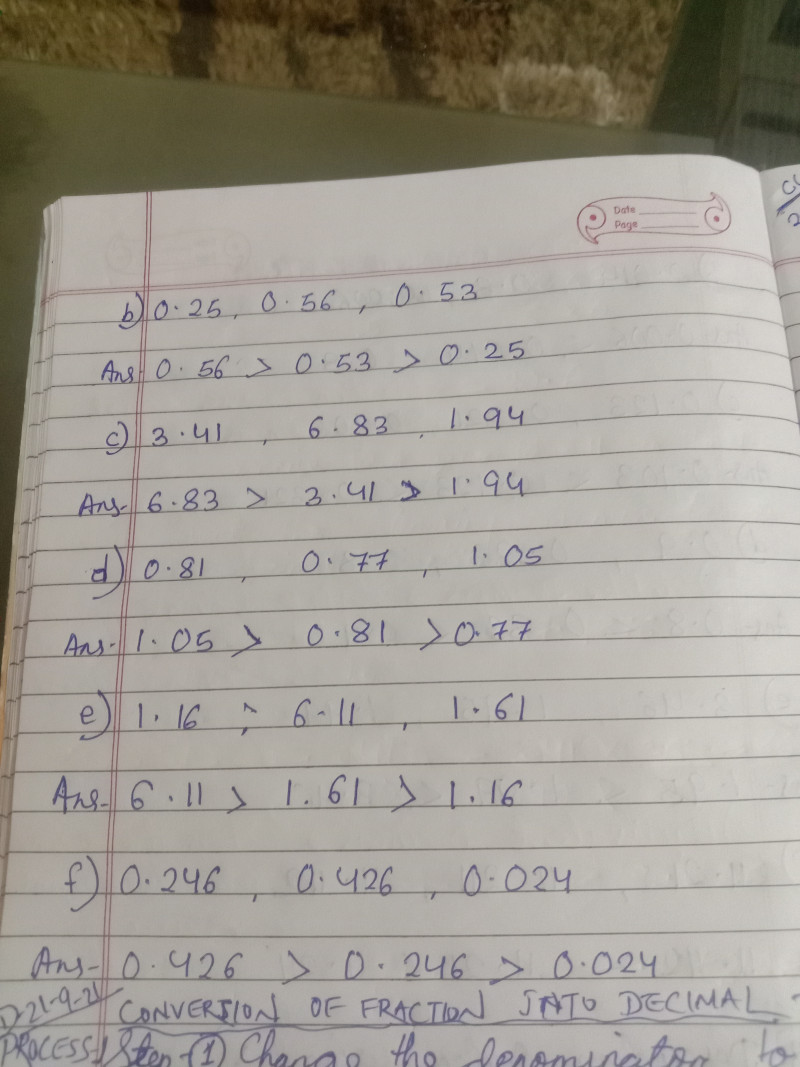 Date
Page
b) 0.25, 0.56, 0.53
Ans 0.56 > 0.53 > 0.25
c) 3.41, 6.83, 1.94
Ans- 6.83 > 3.41 > 1.94
d) 0.81, 0.77, 1.05
Ans- 1.05 > 0.81 > 0.77
e) 1.16, 6.11, 1.61
Ans- 6.11 > 1.61 > 1.16
f) 0.246, 0.426, 0.024
Ans- 0.426 > 0.246 > 0.024
D-21-9-21 CONVERSION OF FRACTION INTO DECIMAL-
PROCESS Step-(1) Change the denominator to